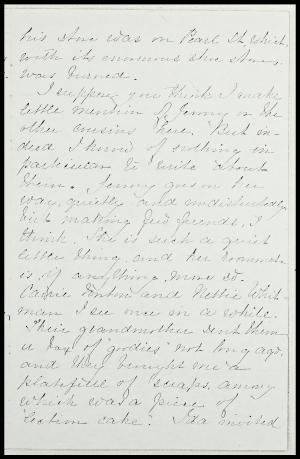 his store was on Pearl St. which
with its enormous shoe stores
was burned.
I suppose you think I make
little mention of Jenny or the
other cousins here. But in-
deed I know of nothing in
particular to write about
them. Jenny goes on her
way, quietly and undisturbedly
but making good friends, I
think. She is such a quiet
little thing and her roommate
is, if anything, more so.
Carrie and Nettie Whit-
man I see once in a while.
Their grandmother sent them
a box of "goodies" not long ago,
and they brought me a
platefull of scraps, among
which was a piece of
"Election cake". Ida invited